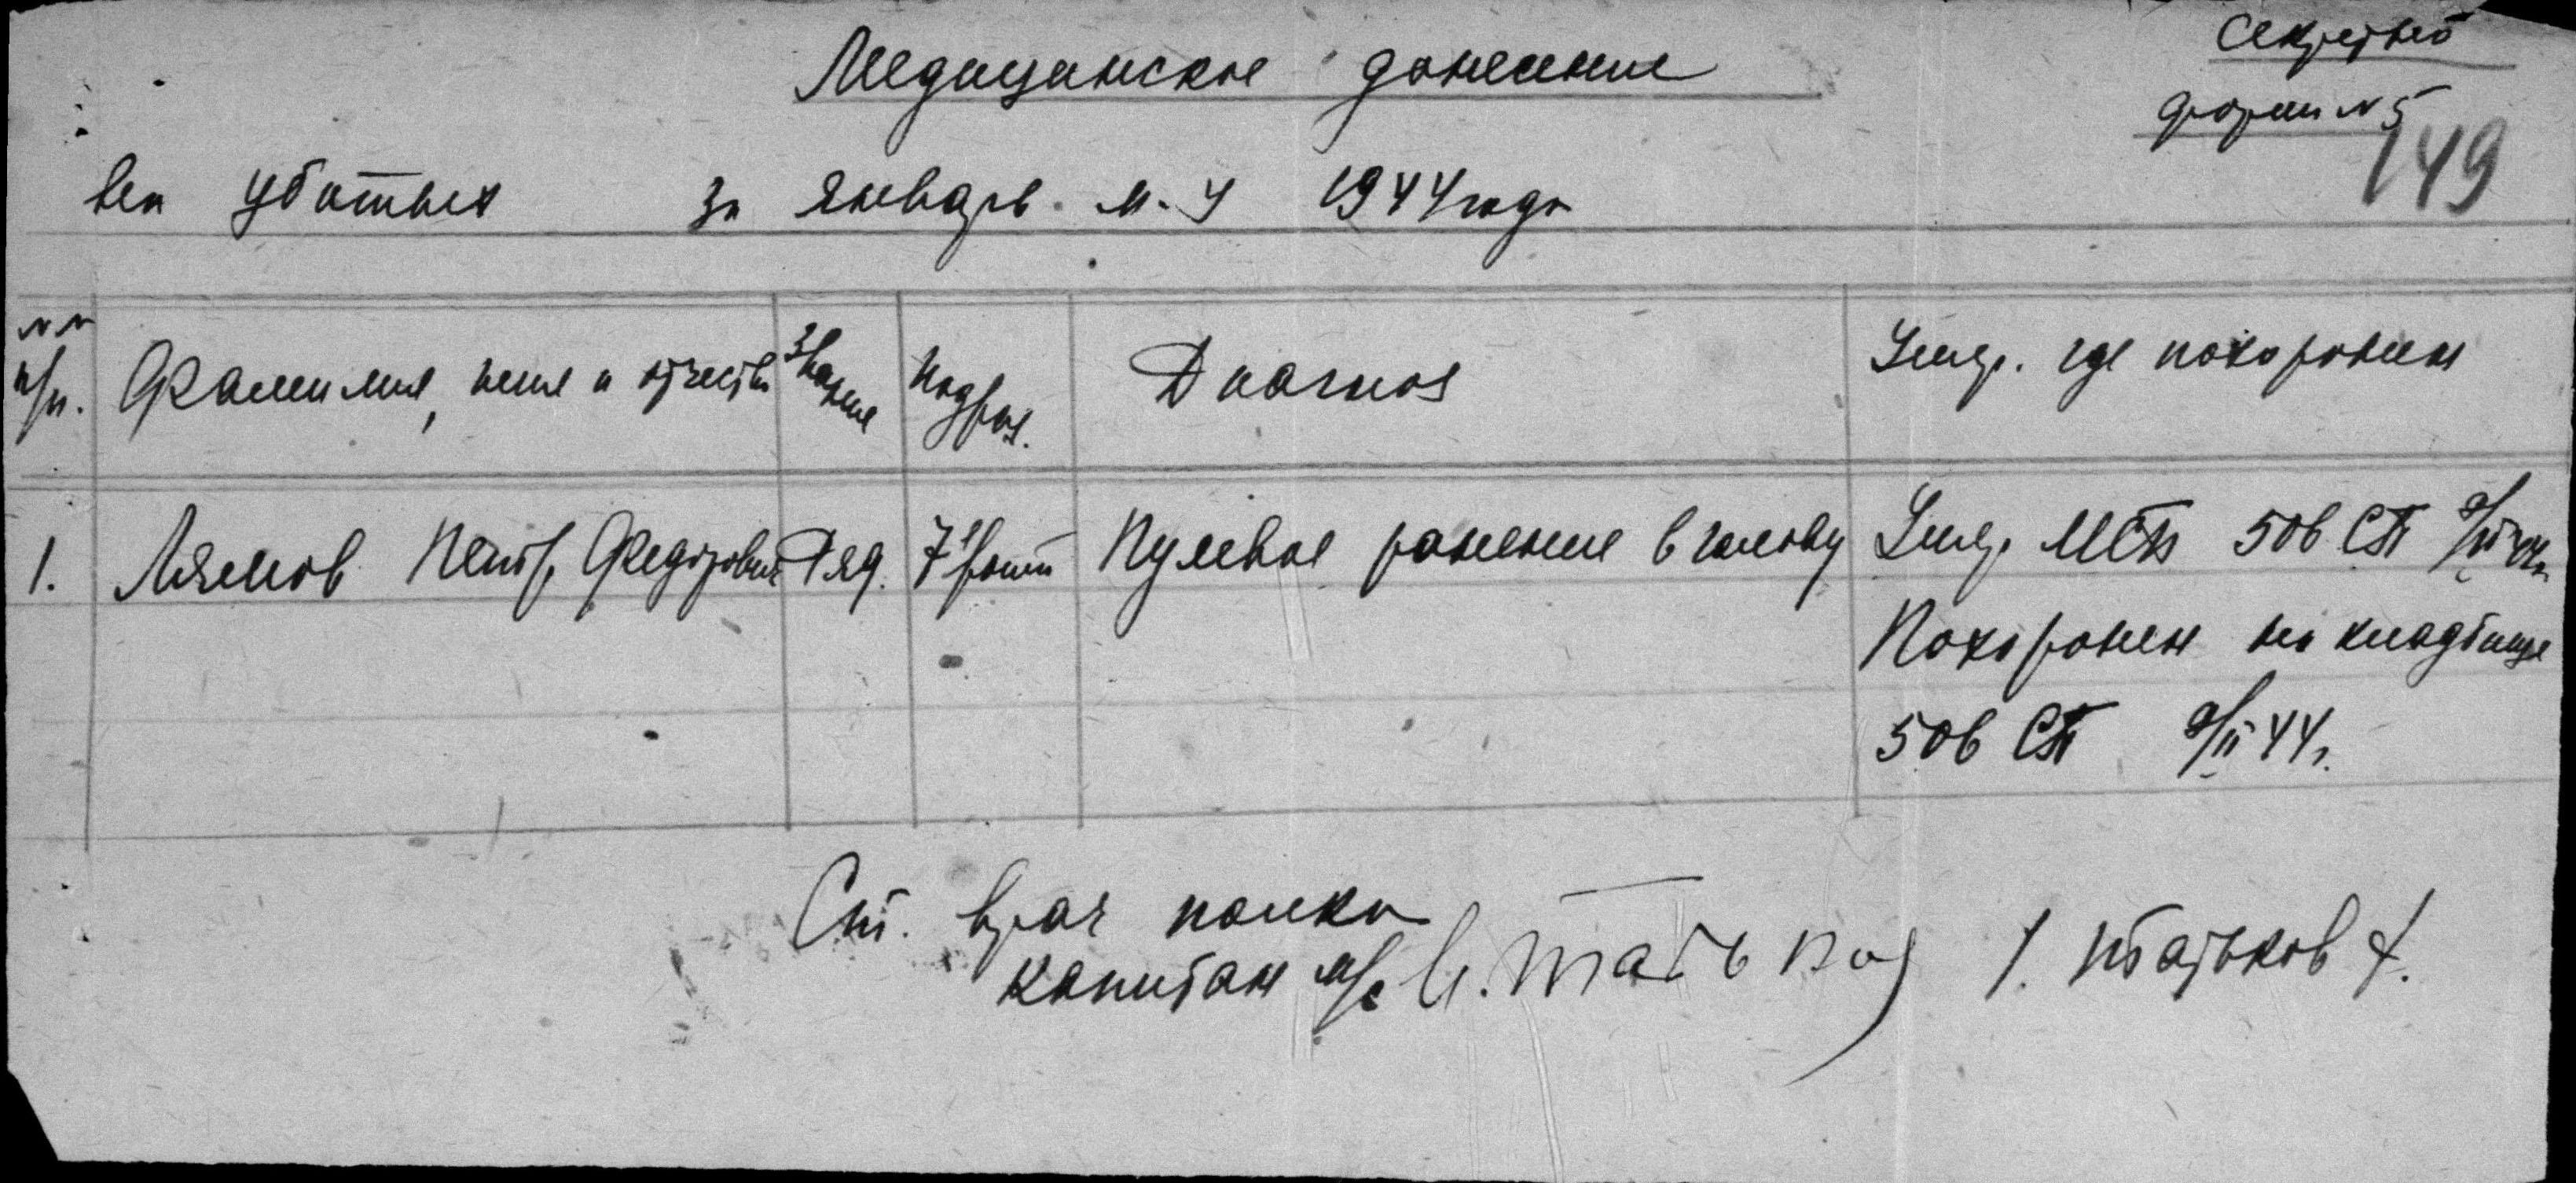 Секретно
Медицинское донесение
форма № 5
149
на убитых за январь м-ц 1944 года
№№ п/п. Фамилия, имя и отчество Звание Подраз. Диагноз Умер. где похоронен
1. Лямов Петр Федорович Ряд. 7 роты Пулевое ранение в голову Умер МСП 506 СП 9/II 44г.
Похоронен на кладбище
506 СП 9/II 44г.
Ст. врач полка
капитан м/с /. Татьков /.